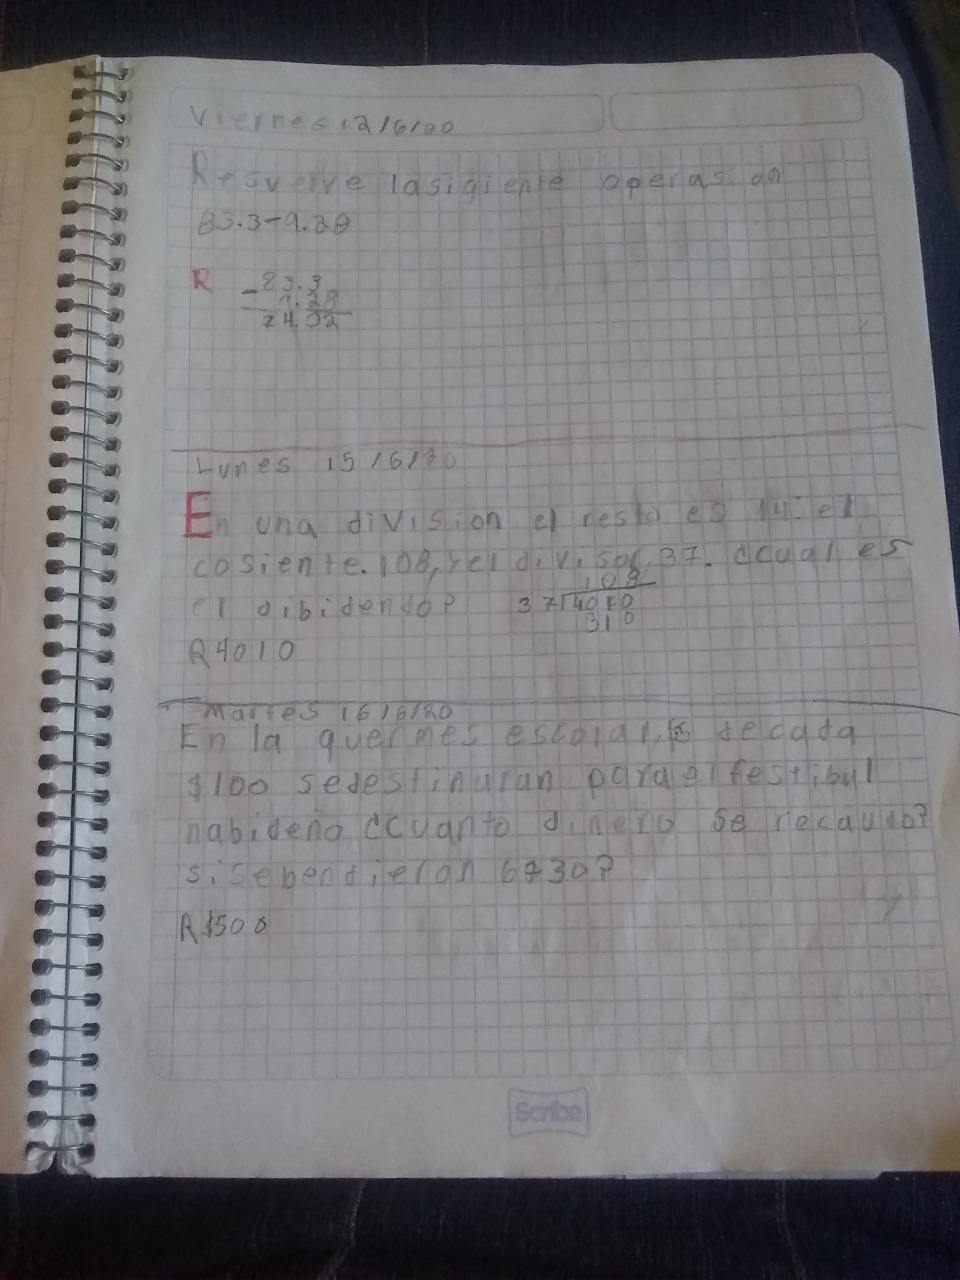 Viernes 12/6/20
Resverve lasigiente operasion
83.3-9.28
R -83.3
9.28
74.02
Lunes 15/6/20
En una division el resto es 14 el
cosiente.108, y el divisor,37. ¿cual es
108
el dibidendo? 37 4010
310
R4010
Martes 16/6/20
En la quermes escolar, $5 de cada
$100 sedestinaran para el festibal
nabideño ¿cuanto dinero se recaudo?
sisebendieron 6730?
R $500
Scribe